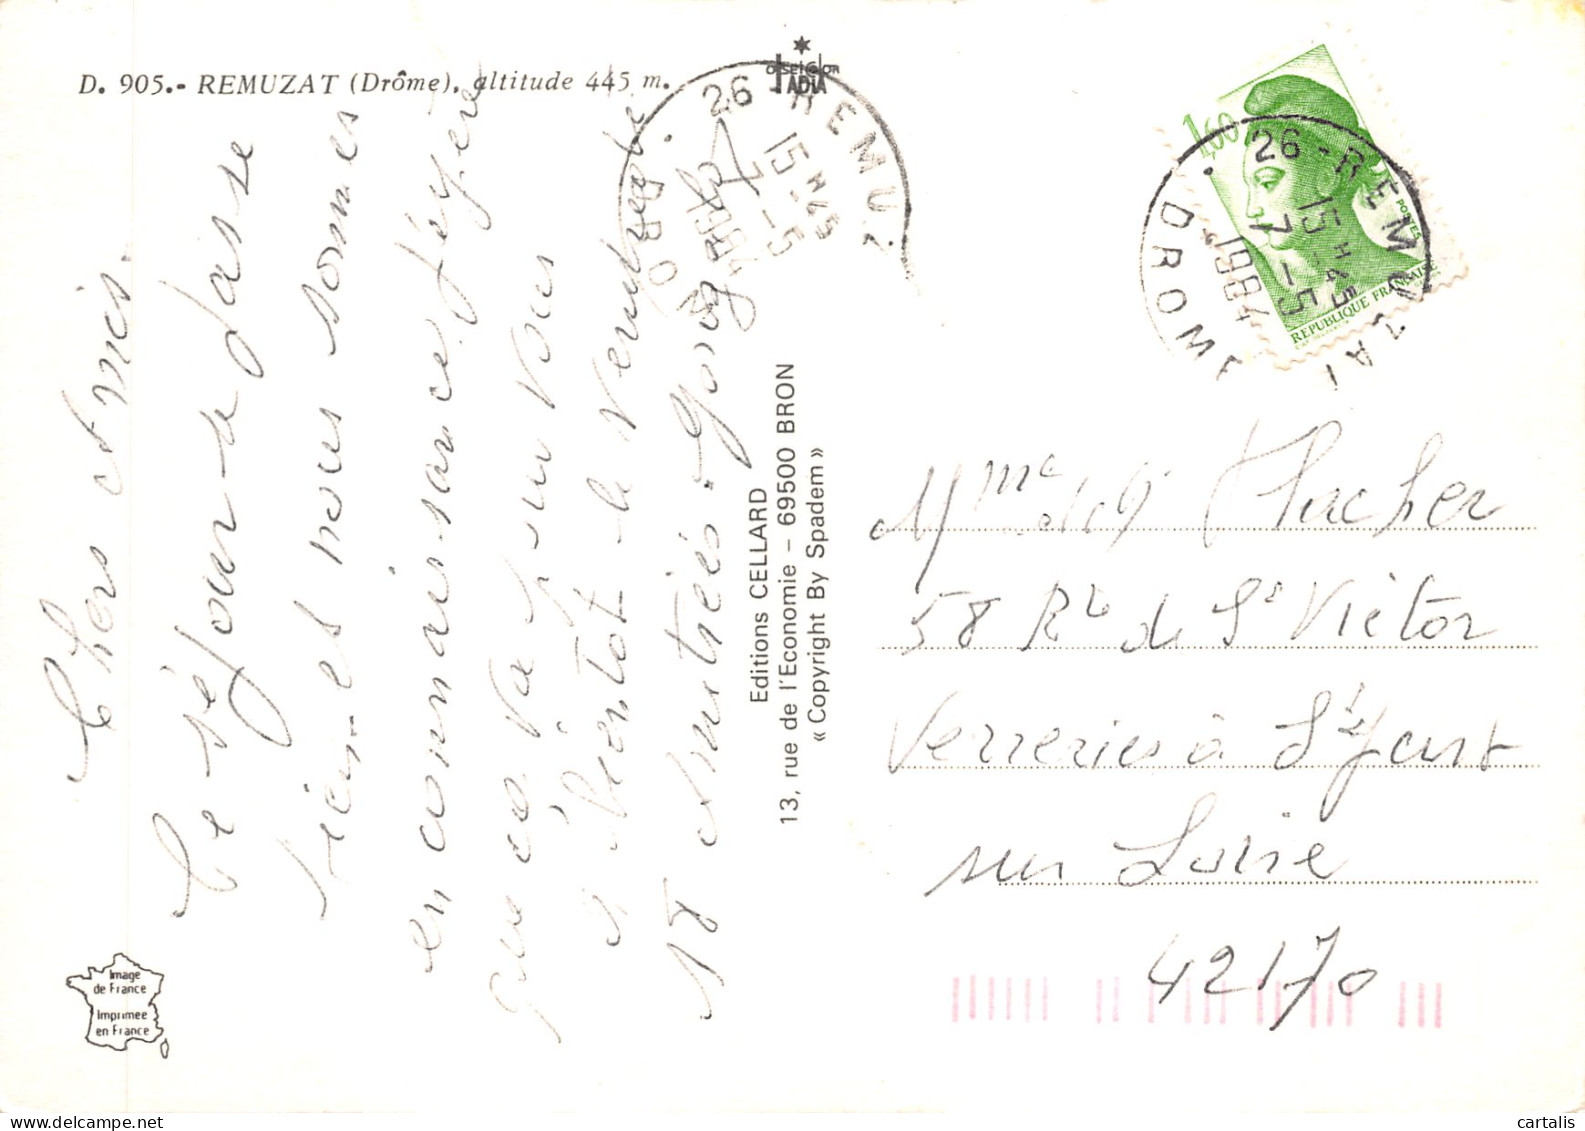 D. 905.- REMUZAT (Drôme), altitude 445 m.
Chers amis.
Le séjour se passe
bien et nous sommes
en connaissance j'espère
que ça va pour vous
à bientôt le
18 Amitiés. Georges
Image
de France
Imprimée
en France
Editions CELLARD
13, rue de l'Economie - 69500 BRON
« Copyright By Spadem »
26 - REMUZ
15 H 45
7 - 5
1984
DROME
1,60
POSTES
REPUBLIQUE FRANÇAISE
26 - REMUZAT
15 H 45
7 - 5
1984
DROME
Mme et Mr
58 Rte de St Victor
Verreries à St Just
sur Loire
42170
cartalis